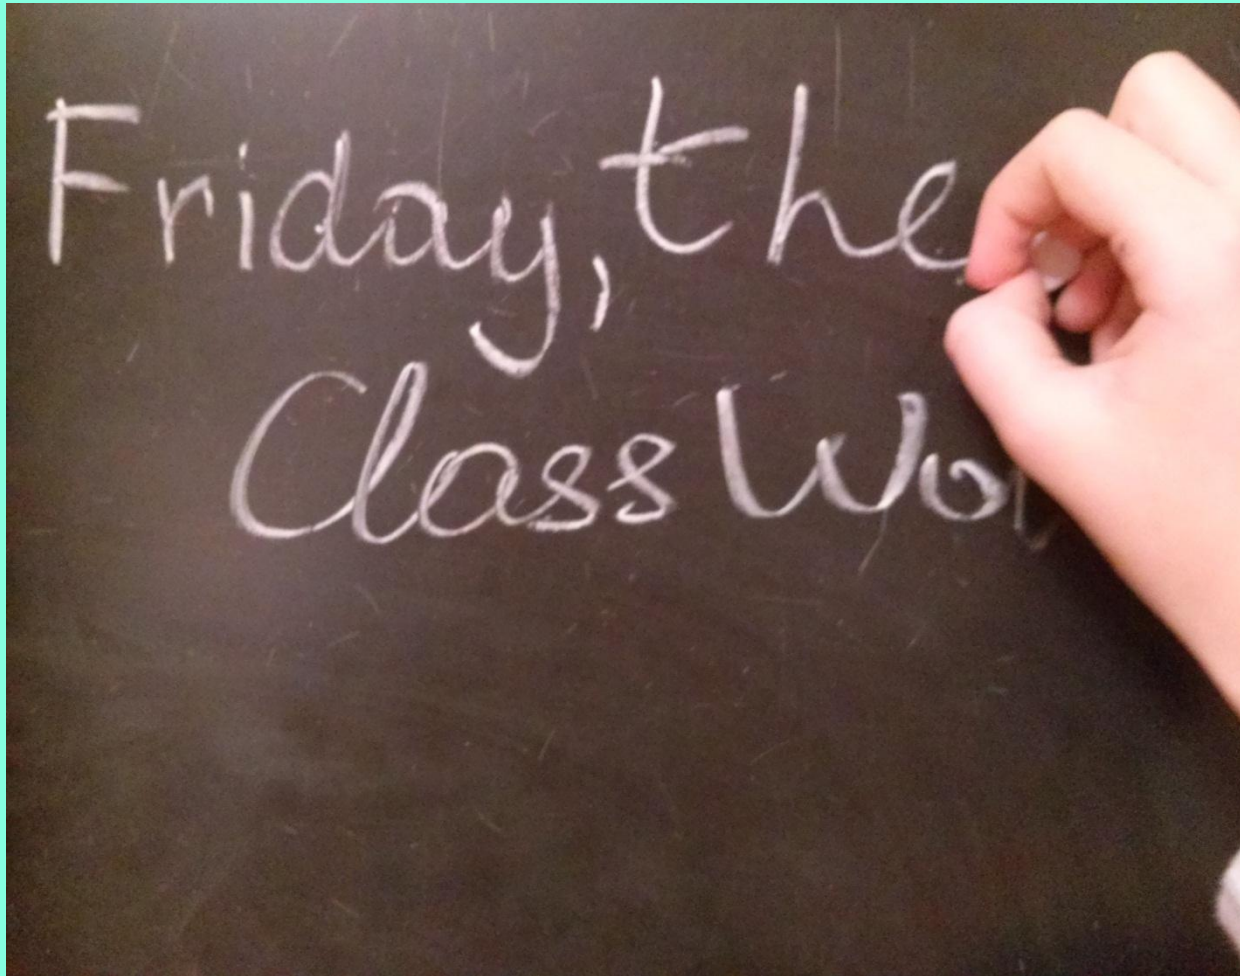 Friday, the
Class Wo